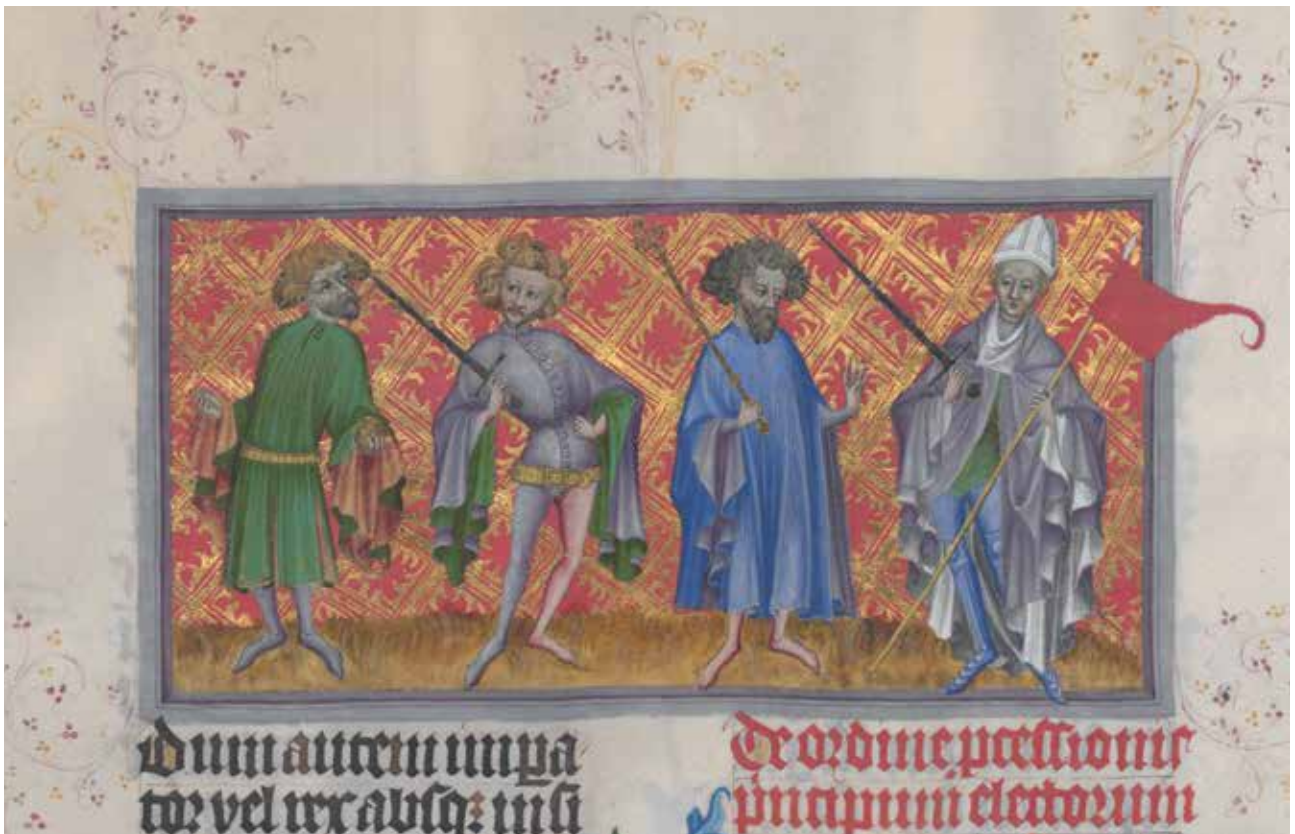 Dum autem imꝑa
tor vel rex absqꝫ insi
De ordine ꝓcessionis
pncipum electorum